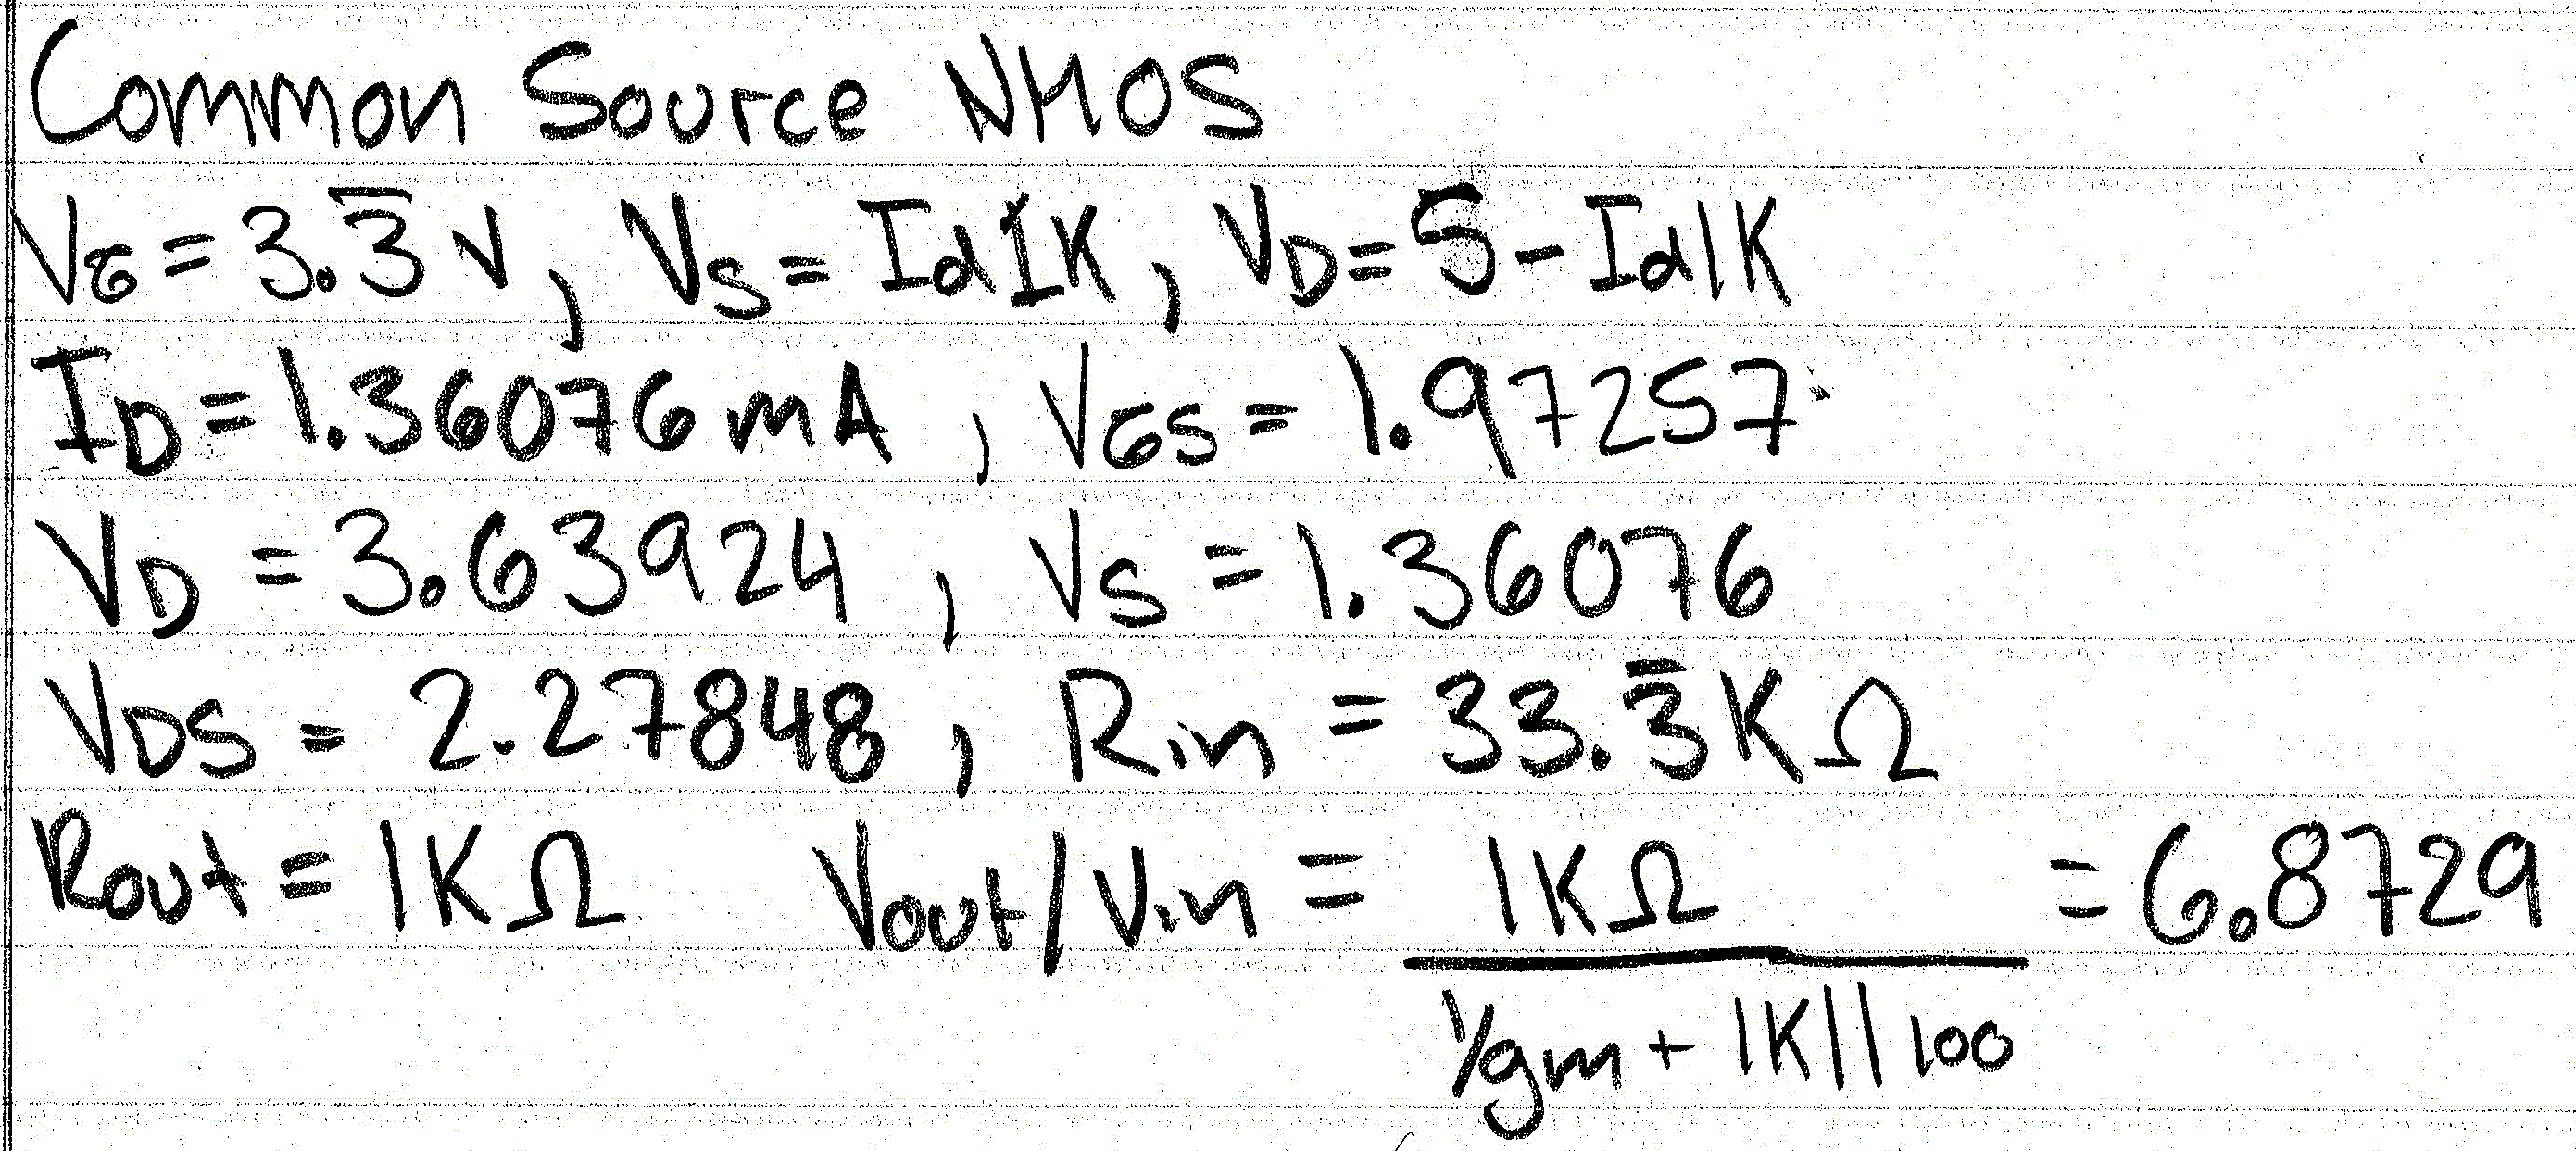 Common Source NMOS
VG = 3.3̅ V, VS = Id1K, VD = 5 - Id1K
ID = 1.36076 mA, VGS = 1.97257
VD = 3.63924, VS = 1.36076
VDS = 2.27848, Rin = 33.3̅ KΩ
Rout = 1KΩ Vout/Vin = 1KΩ = 6.8729
1/gm + 1K||100